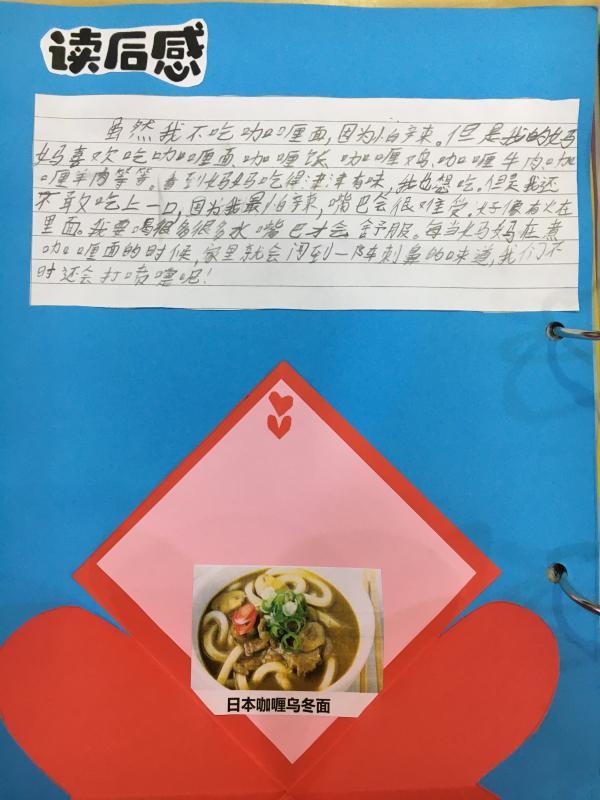 读后感
虽然我不吃咖喱面,因为怕辛束。但是我的妈
妈喜欢吃咖喱面、咖喱饭、咖喱鸡、咖喱牛肉、咖
喱羊肉等等。看到妈妈吃得津津有味,我也想吃。但是我还
不敢吃上一口,因为我最怕辣,嘴巴会很难受。好像有火在
里面。我要喝很多很多水嘴巴才会舒服。每当妈妈在煮
咖喱面的时候,家里就会闻到一阵刺鼻的味道,我们不
时还会打喷嚏呢!
日本咖喱乌冬面